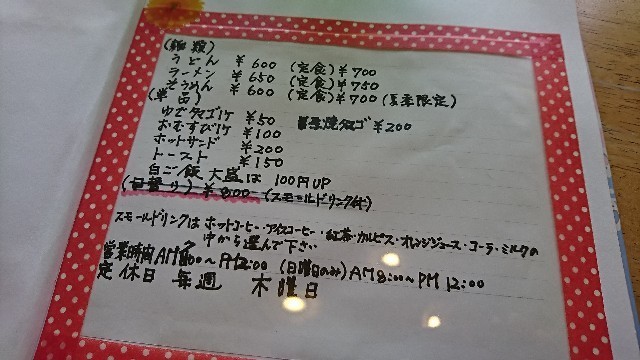 (麺類)
うどん ¥600 (定食)¥700
ラーメン ¥650 (定食)¥750
そうめん ¥600 (定食)¥700 (夏季限定)
(単品)
ゆでタマゴ1ケ ¥50 焼タマゴ ¥200
おむすび1ケ ¥100
ホットサンド ¥200
トースト ¥150
白ご飯大盛は 100円UP
(日替り) ¥800 (スモールドリンク付)
スモールドリンクは ホットコーヒー・アイスコーヒー・紅茶・カルピス・オレンジジュース・コーラ・ミルクの
中から選んで下さい
営業時間 AM 00〜PM2:00 (日曜日のみ) AM8:00〜PM12:00
定休日 毎週 木曜日